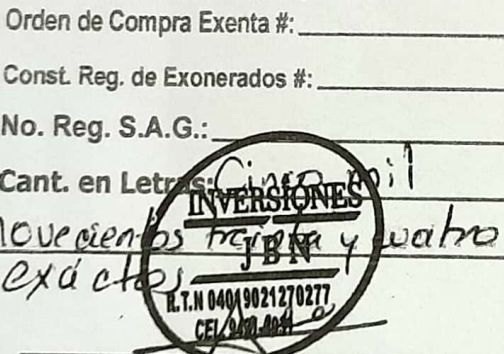 Orden de Compra Exenta #:
Const. Reg. de Exonerados #:
No. Reg. S.A.G.:
Cant. en Letras: Cinco mil
novecientos treinta y cuatro
exáctos
INVERSIONES
JBN
R.T.N 04019021270277
CEL.